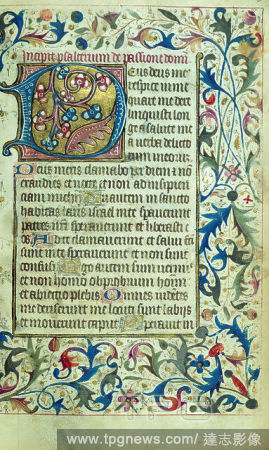 Incipit psalterium de passione domi
Eus deus me
respice in me
quare me dere
liquisti lon
ge a salute me
a verba delicto
rum meorum
Deus meus clamabo per diem i no
exaudies et nocte et non ad insipien
ciam michi Tu autem in sancto
habitas laus israel In te speraverunt
patres nostri speraverunt et liberasti e
os Ad te clamaverunt et salui facti
sunt in te speraverunt et non sunt
confusi Ego autem sum vermis
et non homo obprobrium hominum
et abiectio plebis Omnes videntes
me deriserunt me locuti sunt labijs
et moverunt caput Speravit in
www.tpgnews.com/ 達志影像